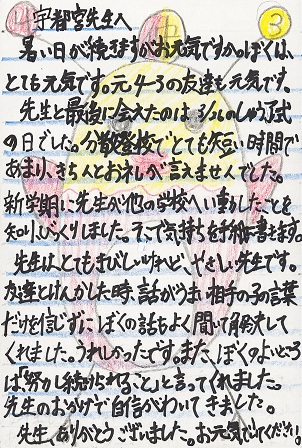 宇都宮先生へ
③
暑い日が続きますがお元気ですか。ぼくは、
とても元気です。元4-3の友達も元気です。
先生と最後に会えたのは3/のしゅう了式
の日でした。分散登校でとても短い時間で
あまり、きちんとおれいが言えませんでした。
新学期に先生が他の学校へい動したことを
知り、びっくりしました。そこで気持ちを手紙に書きます。
先生はとてもきびしいけれど、やさしい先生です。
友達とけんかした時、話がうまい相手の子の言葉
だけを信じずにぼくの話もよく聞いて解決して
くれました。うれしかったです。また、ぼくのよいところ
は「努力し続けられること」と言ってくれました。
先生のおかげで自信がわいてきました。
先生、ありがとうございました。お元気でいてください